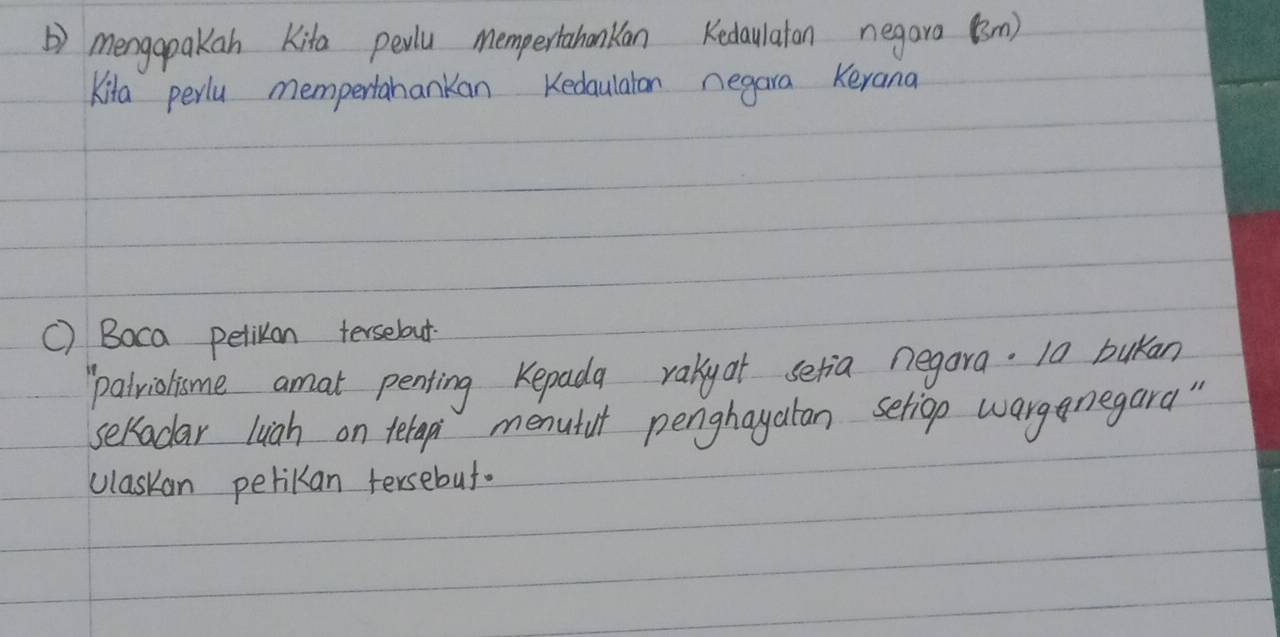 b) mengapakah Kita perlu mempertahankan Kedaulatan negara (3m)
Kita perlu mempertahankan Kedaulatan negara Kerana
c) Baca petikan tersebut.
"patriotisme amat penting kepada rakyat setia negara. Ia bukan
sekadar luah an tetapi menutut penghayatan setiap warganegara"
Ulaskan petikan tersebut.